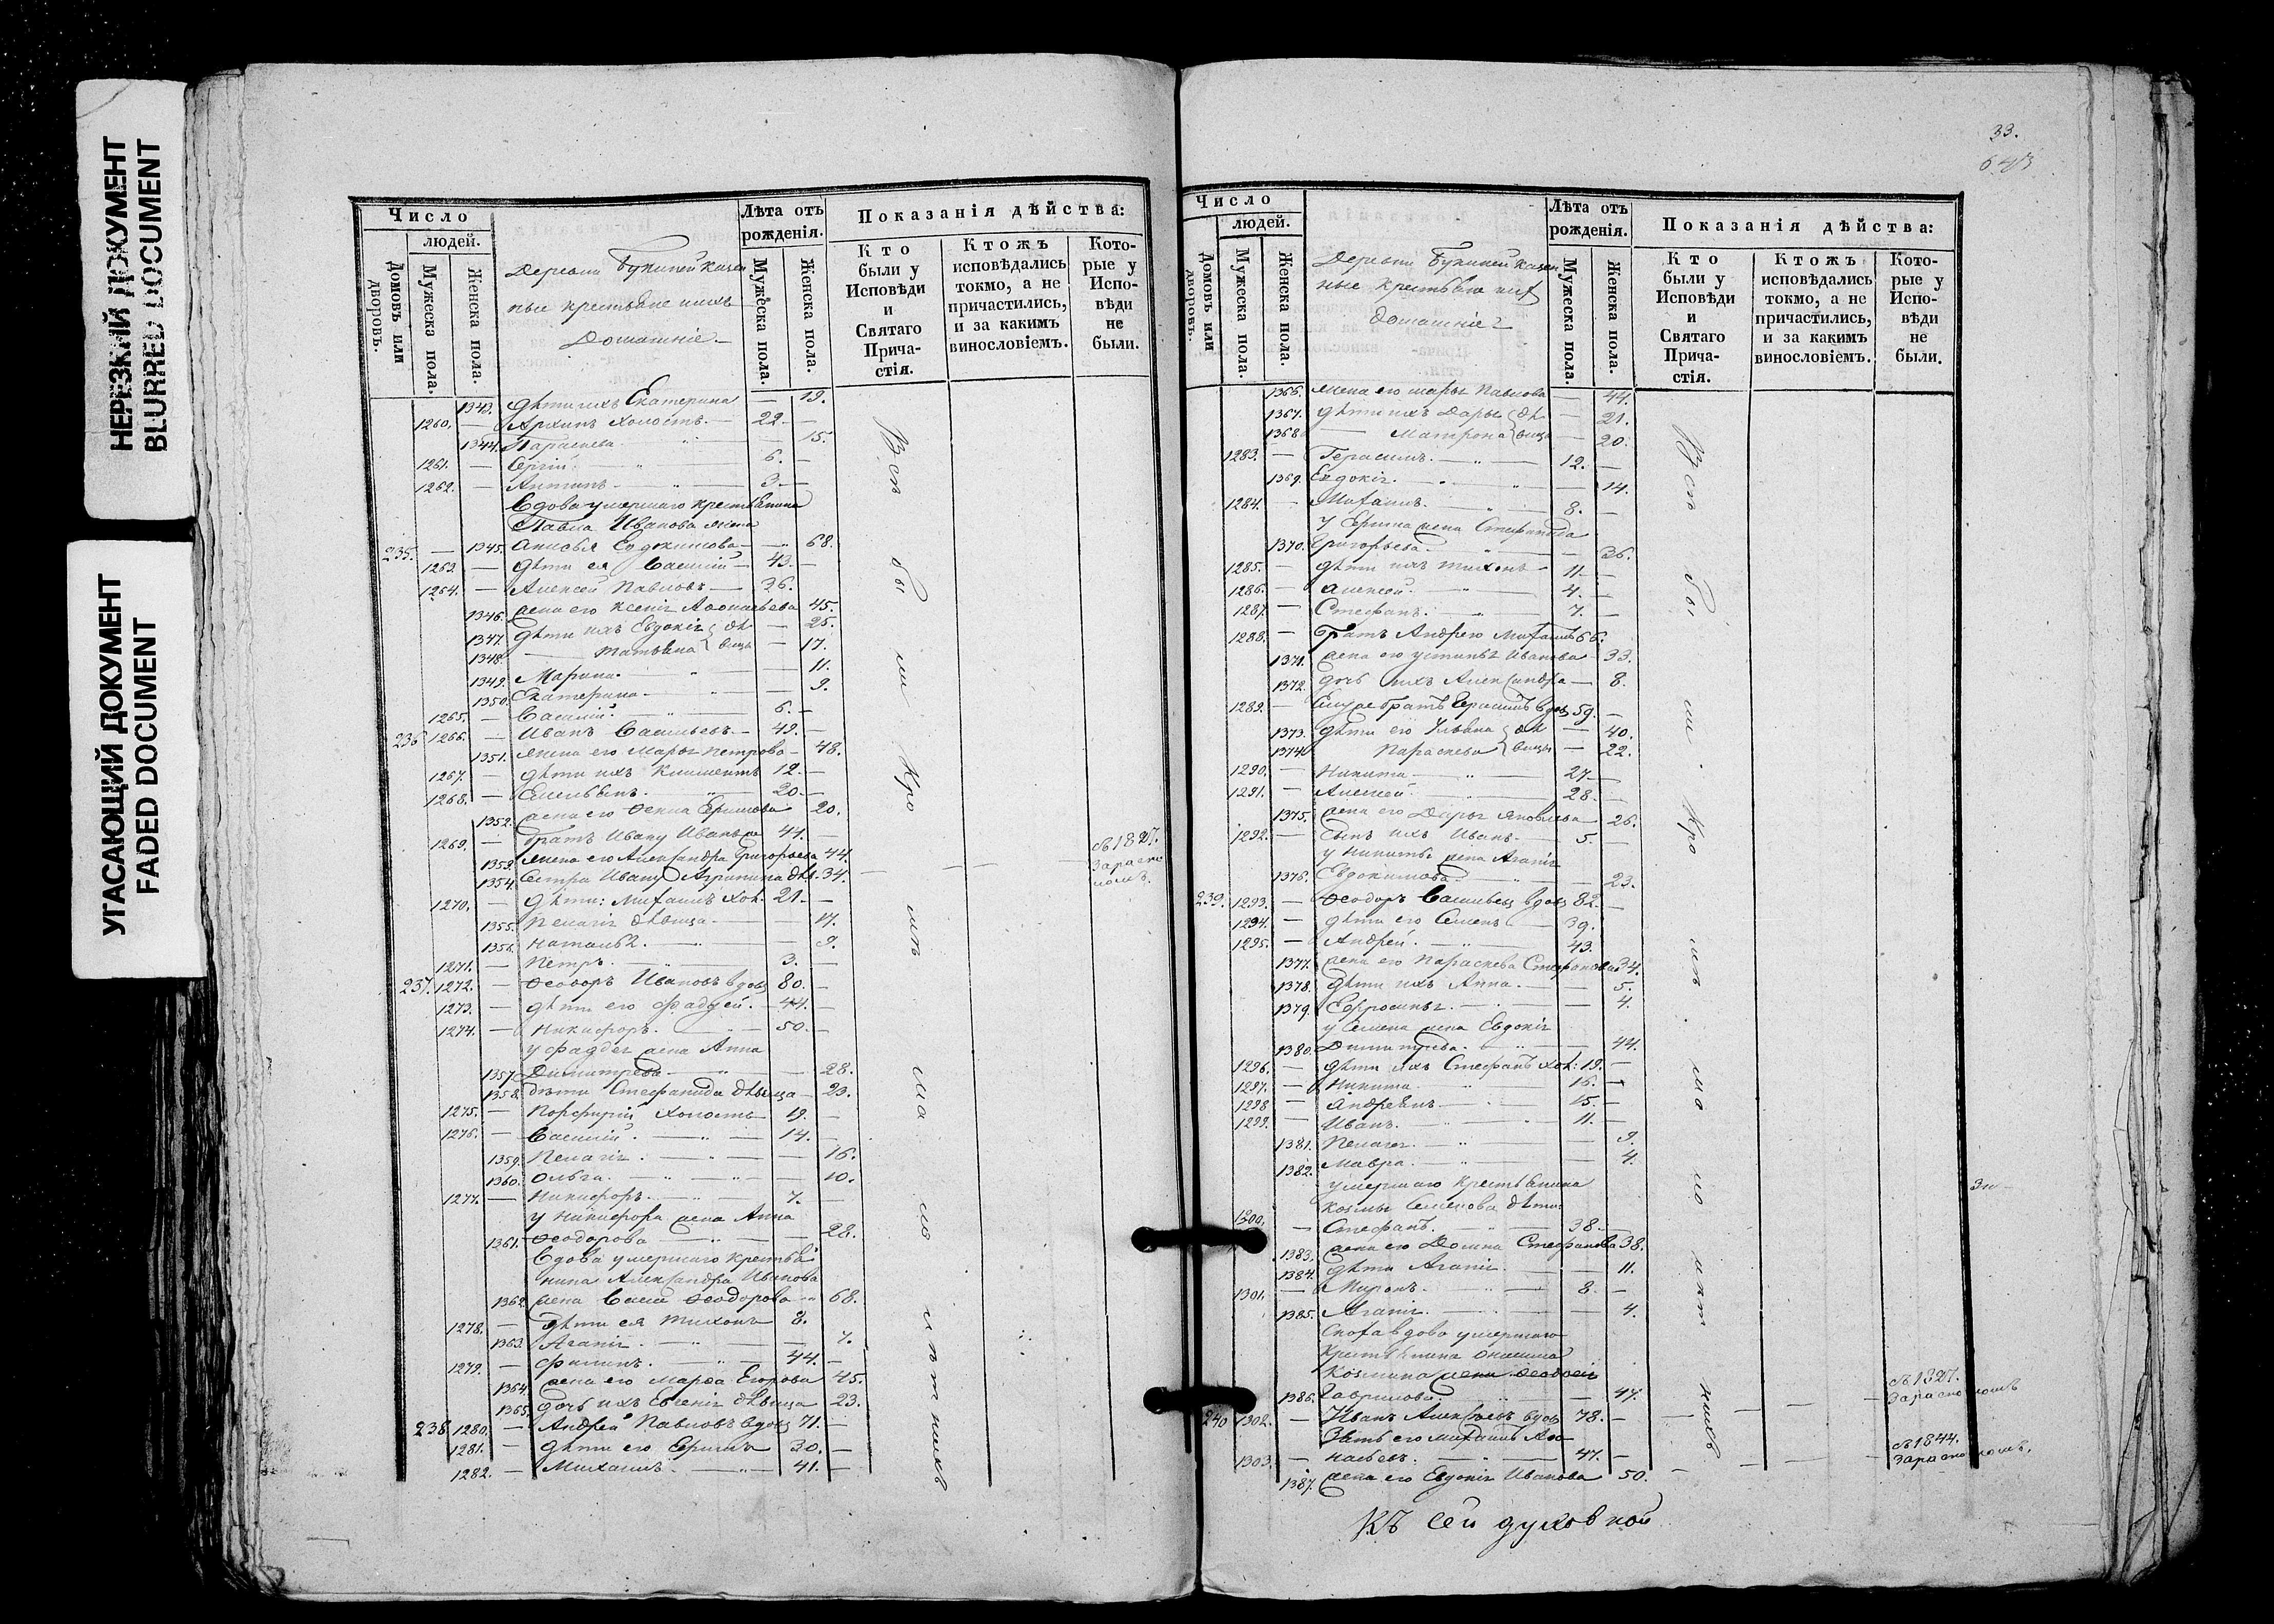 НЕРЕЗКИЙ ДОКУМЕНТ
BLURRED DOCUMENT
УГАСАЮЩИЙ ДОКУМЕНТ
FADED DOCUMENT
Число
людей.
Домовъ или дворовъ.
Мужеска пола.
Женска пола.
Деревни казен
ные крестьяне ихъ
Домашніе
Лѣта отъ
рожденія.
Мужеска пола.
Женска пола.
Показанія дѣйства:
Кто
были у
Исповѣди
и
Святаго
Прича-
стія.
Ктожъ
исповѣдались
токмо, а не
причастились,
и за какимъ
винословіемъ.
Кото-
рые у
Испо-
вѣди
не
были.
1343. дѣти ихъ Екатерина — 19.
1260. — Архипъ холостъ — 22. —
1344. Параскева — 15.
1261. — Сергій — 6. —
1262. — Антипъ — 3. —
Вдова умершаго крестьянина
Павла Иванова жена
235. — 1345. Анисья Евдокимова — 68.
1263. — дѣти ея Василій — 43. —
1264. — Алексей Павловъ — 36. —
1346. жена его Ксенія 45.
1347. дѣти ихъ Евдокія дѣ — 25.
1348. — Татьяна вицы — 17.
1349. Марина — 11.
1350. Екатерина — 9.
1265. — Василій — 6. —
236 1266. — Иванъ Васильевъ — 49. —
1351. жена его Марья Петрова — 48.
1267. — дѣти ихъ Климентъ 12. —
1268. — Емельянъ 20. —
1352. жена его Ермилова 20.
1269. — братъ Ивану 44. —
1353. жена его Александра Григорьева 44.
1354. сестра Ивану Агрипина дѣв. 34. —
съ 1827.
За раско
ломъ.
1270. — дѣти: Михаилъ хол. 21. —
1355. Пелагія дѣвица —
1356. Наталья — 9.
1271. — Петръ — 3. —
237. 1272. — Ѳеодоръ Ивановъ вдовъ 80. —
1273. — дѣти его Фадѣей — 44. —
1274. — Никифоръ — 50. —
у Фаддея жена Анна
1357. Димитрева — 28.
1358. дѣти Стефанида дѣвица — 23.
1275. — Порфирій холостъ 19. —
1276. — Василій — 14. —
1359. Пелагія — 16.
1360. Ольга — 10.
1277. — Никифоръ — 7. —
у Никифора жена Анна
1361. Ѳеодорова — 28.
Вдова умершаго крестья
нина Александра Иванова
1362. жена Васса Ѳеодорова 68.
1278. — дѣти ея Тихонъ 8. —
1363. Агапія — 7.
1279. — Филипъ — 44. —
1364. жена его Марѳа Егорова 45.
1365. дочь ихъ Евгенія дѣвица 23.
238 1280. — Андрей Павловъ вдовъ 71. —
1281. — дѣти его Ермилъ 30. —
1282. — Михаилъ — 41. —
33.
Число
людей.
Домовъ или дворовъ.
Мужеска пола.
Женска пола.
Деревни казен
ные крестьяне ихъ
Домашніе
Лѣта отъ
рожденія.
Мужеска пола.
Женска пола.
Показанія дѣйства:
Кто
были у
Исповѣди
и
Святаго
Прича-
стія.
Ктожъ
исповѣдались
токмо, а не
причастились,
и за какимъ
винословіемъ.
Кото-
рые у
Испо-
вѣди
не
были.
1366. жена его Марья Павлова — 44.
1367. дѣти ихъ Дарья дѣ — 21.
1368 — Матрона вицы — 20.
1283. — Герасимъ — 12. —
1369. Евдокія — 14.
1284. — Михаилъ 8. —
у Ермила жена Стефанида
1370. Григорьева — 36.
1285. — дѣти ихъ Тихонъ 11. —
1286. — Алексей — 4. —
1287. — Стефанъ — 7. —
1288. — Братъ Андрею Михаилъ 66.
1371. жена его Устинья Иванова — 33.
1372. дочь ихъ Александра — 8.
1289. — братъ вдов 59. —
1373. дѣти его Ульяна дѣ — 40.
1374. Параскева вицы — 22.
1290. — Никита — 27. —
1291. — Алексей — 28. —
1375. жена его Дарья Яковлева 26.
1292. — сынъ ихъ Иванъ — 5. —
у Никиты жена Агапія
1376. Евдокимова — 23.
239. 1293. — Ѳеодоръ Васильевъ вдовъ 82. —
1294. — дѣти его Семенъ — 39. —
1295. — Андрей — 43.
1377. жена его Параскева Стефанова 34.
1378. дѣти ихъ Анна — 5.
1379. Евфросинья — 4.
у Семена жена Евдокія
1380. Димитрева — 44.
1296. — дѣти ихъ Стефанъ хол: 19. —
1297. — Никита 16. —
1298 — Андреянъ — 15. —
1299. — Иванъ — 11. —
1381. Пелагея — 9.
1382. Мавра — 4.
умершаго крестьянина
Козмы Семенова дѣти:
1300. — Стефанъ — 38. —
1383. жена его Домна Стефанова 38.
1384. дѣти Агапія — 11.
1301. — Миронъ — 8. —
1385. Агапія — 4.
Сноха вдова умершаго
крестьянина
Козмина жена Ѳеодосія
1386. Гаврилова — 47.
съ 1827.
За расколомъ
240 1302. — Иванъ Алексѣевъ вдовъ 78. —
Зять его Михаилъ Аѳа
1303. — насьевъ — 47. —
съ 1844.
За расколомъ.
1387. жена его Евдокія Иванова 50.
Къ сей духовной